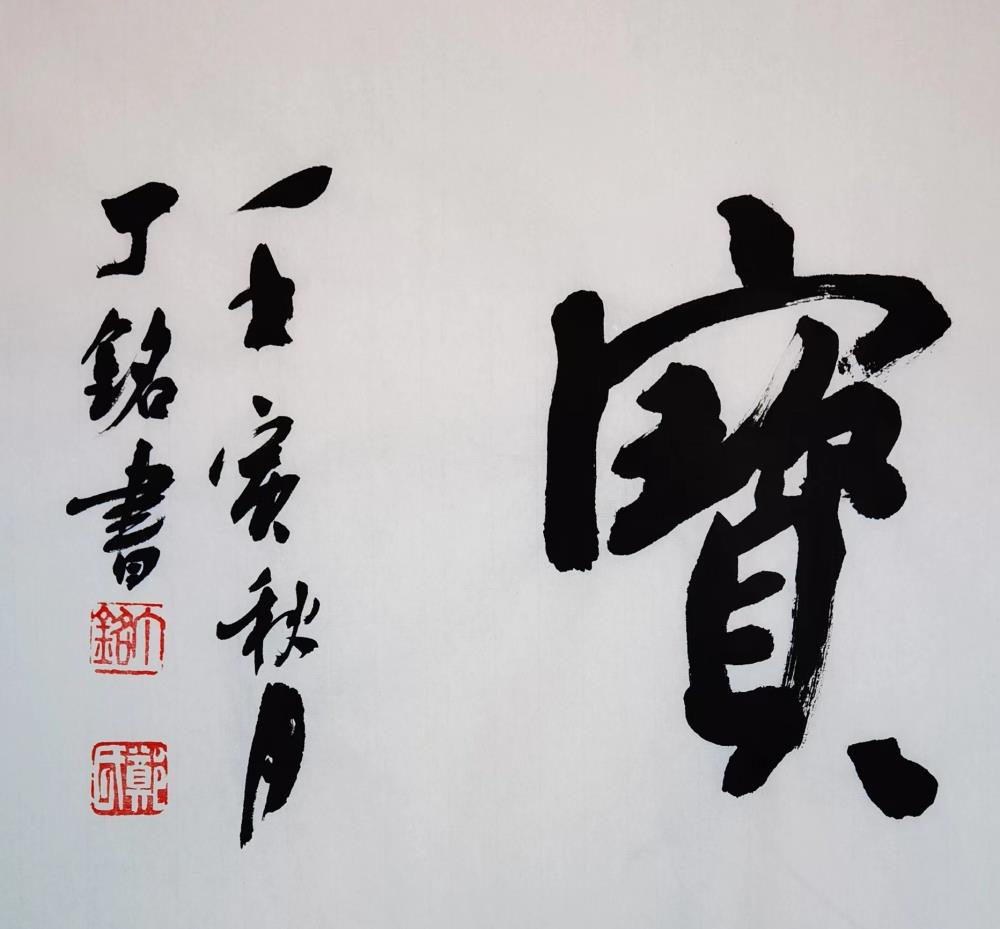 寶
壬寅秋月
丁銘書
丁銘
鄭